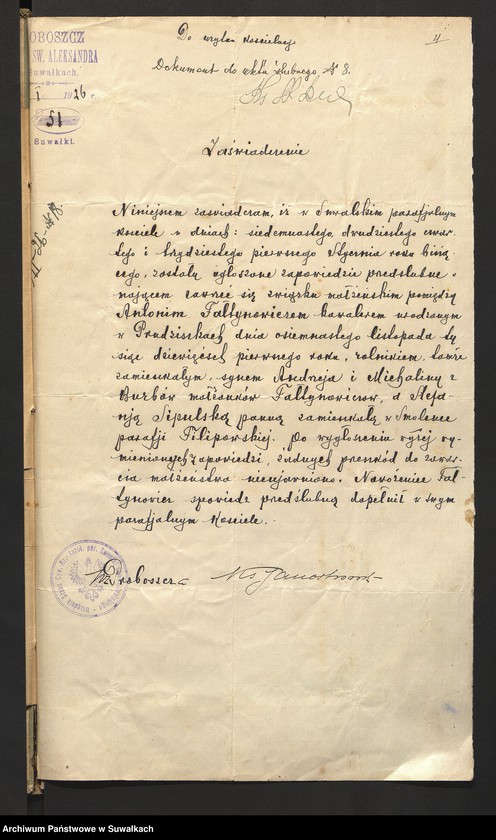 Do użytku kościelnego
4
Dokument do aktu ślubnego № 8.
PROBOSZCZ
ŚW. ALEKSANDRA
Suwałkach.
I 1926 r.
51
Suwałki.
Zaświadczenie
Niniejszem zaświadczam, iż w Suwalskim parafjalnym
kościele w dniach: siedemnastego, dwudziestego czwar-
tego i trzydziestego pierwszego Stycznia roku bieżą-
cego, zostały ogłoszone zapowiedzie przedślubne
mającem zawrzeć się związku małżeńskim pomiędzy
Antonim Fałtynowiczem kawalerem urodzonym
w Prudziszkach dnia osiemnastego listopada ty-
siąc dziewięćset pierwszego roku, rolnikiem, tamże
zamieszkałym, synem Andrzeja i Michaliny z
Burbów małżonków Fałtynowiczow, a Stefa-
nją Sipulską panną zamieszkałą w Smolence
parafji Filipowskiej. Po wygłoszeniu wyżej wy-
mienionych zapowiedzi, żadnych przeszkód do zawar-
cia małżeństwa nieujawniono. Narzeczony Fał-
tynowicz spowiedz przedślubną dopełnił w swym
parafjalnym kościele.
Proboszcz
Archiwum Państwowe w Suwałkach